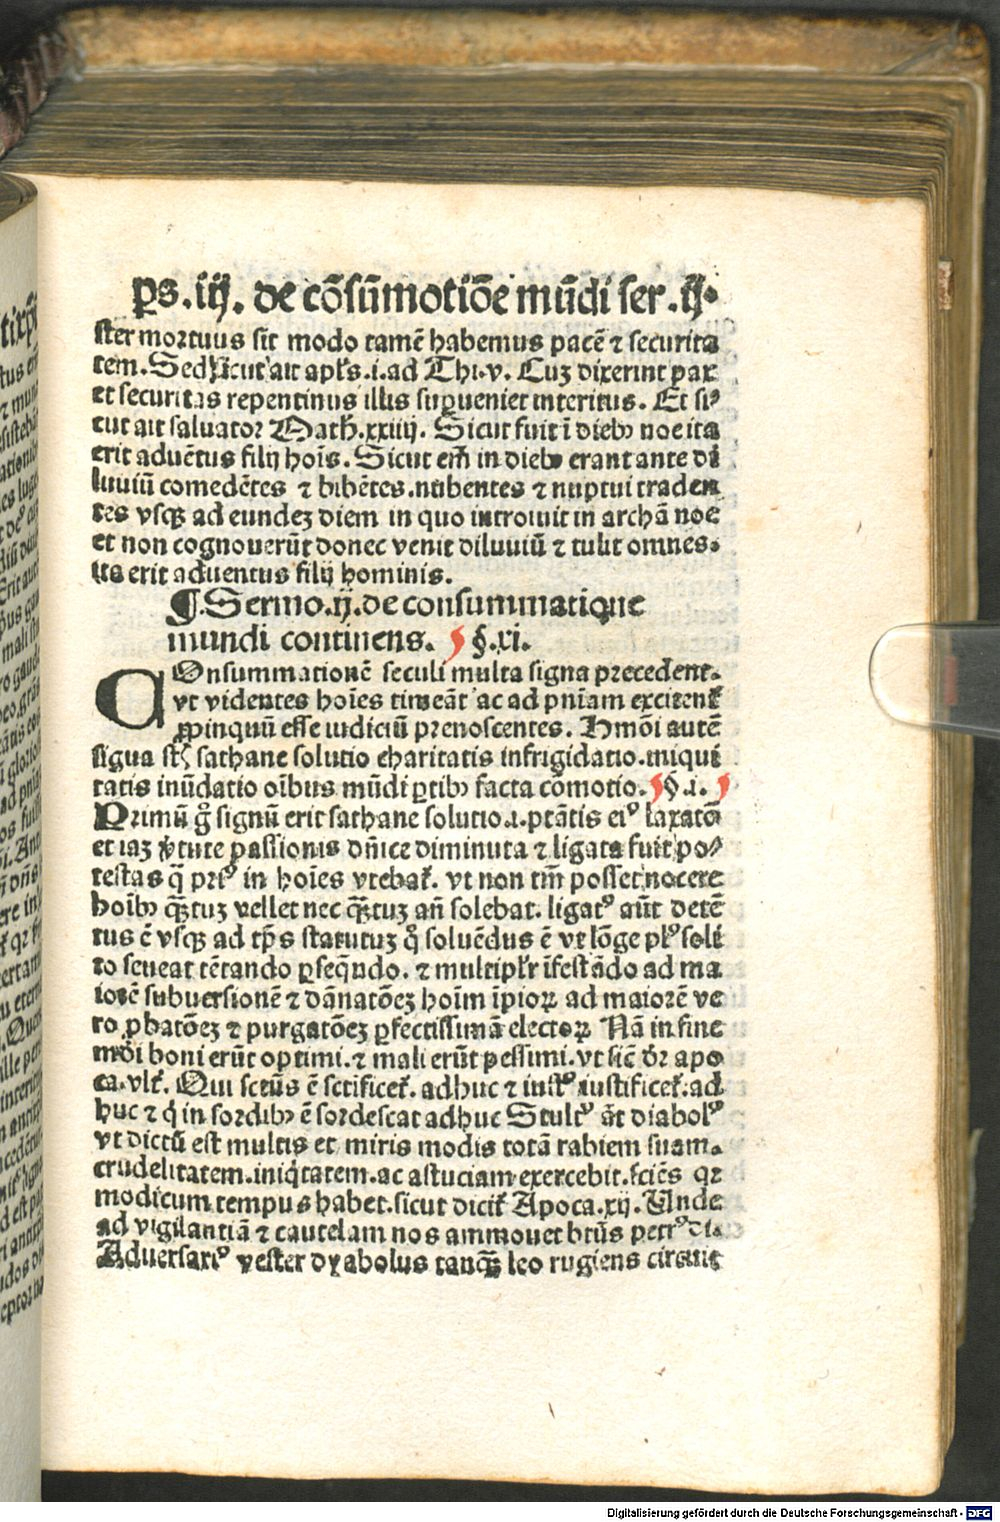 ps.iij. de cōsūmotiōe mūdi ser.ij.
ster mortuus sit modo tamē habemus pacē ⁊ securita
tem. Sed sicut ait apl's.i.ad Thi.v. Cuz dixerint pax
et securitas repentinus illis superueniet interitus. Et si⸗
cut ait saluator Math.xxiiij. Sicut fuit ī diebꝰ noe ita
erit aduētus filij hoīs. Sicut em̄ in diebꝰ erant ante di
luuiū comedētes ⁊ bibētes.nubentes ⁊ nuptui traden
tes vsqꝫ ad eundeꝫ diem in quo introiuit in archā noe
et non cognouerūt donec venit diluuiū ⁊ tulit omnes.
ita erit aduentus filij hominis.
¶.Sermo.ij.de consummatione
mundi continens. §.xi.
COnsummationē seculi multa signa precedent.
vt videntes hoīes timeāt ac ad pn̄iam excitent̄
ꝓpinquū esse iudiciū prenoscentes. Hmōi autē
signa st̄ sathane solutio charitatis infrigidatio.iniqui
tatis inūdatio oībus mūdi ꝑtibꝰ facta cōmotio. §.i.
Primū g̊ signū erit sathane solutio.i.ptātis eiꝰ laxatō
et iaꝫ v̓tute passionis dn̄ice diminuta ⁊ ligata fuit po⸗
testas q̄ priꝰ in hoīes vtebat̄. vt non tm̄ posset nocere
hoībꝰ qꝫtuꝫ vellet nec qꝫtuꝫ an̄ solebat. ligatꝰ aūt detē
tus ē vsqꝫ ad tp̄s statutuꝫ q̊ soluēdus ē vt lōge plꝰ soli
to seueat tētando ꝑseq̄ndo. ⁊ multipl'r īfestādo ad ma
iorē subuersionē ⁊ dānatōeꝫ hoīm īpioꝝ ad maiorē ve
ro ꝓbatōeꝫ ⁊ purgatōeꝫ ꝑfectissimā electoꝝ Nā in fine
mūdi boni erūt optimi.⁊ mali erūt pessimi.vt sic̄ dr̄ apo
ca.vlt̄. Qui sctūs ē sctificet̄. adhuc ⁊ iustꝰ iustificet̄.ad
huc ⁊ q̇ in sordibꝰ ē sordescat adhuc Stultꝰ āt diabolꝰ
vt dictū est multis et miris modis totā rabiem suam.
crudelitatem.iniq̇tatem.ac astuciam exercebit.sciēs qꝛ
modicum tempus habet.sicut dicit̄ Apoca.xij. Unde
ad vigilantiā ⁊ cautelam nos ammouet btūs petrꝰ di.
Aduersariꝰ vester dyabolus tanqꝫ leo rugiens circuit
Digitalisierung gefördert durch die Deutsche Forschungsgemeinschaft - DFG